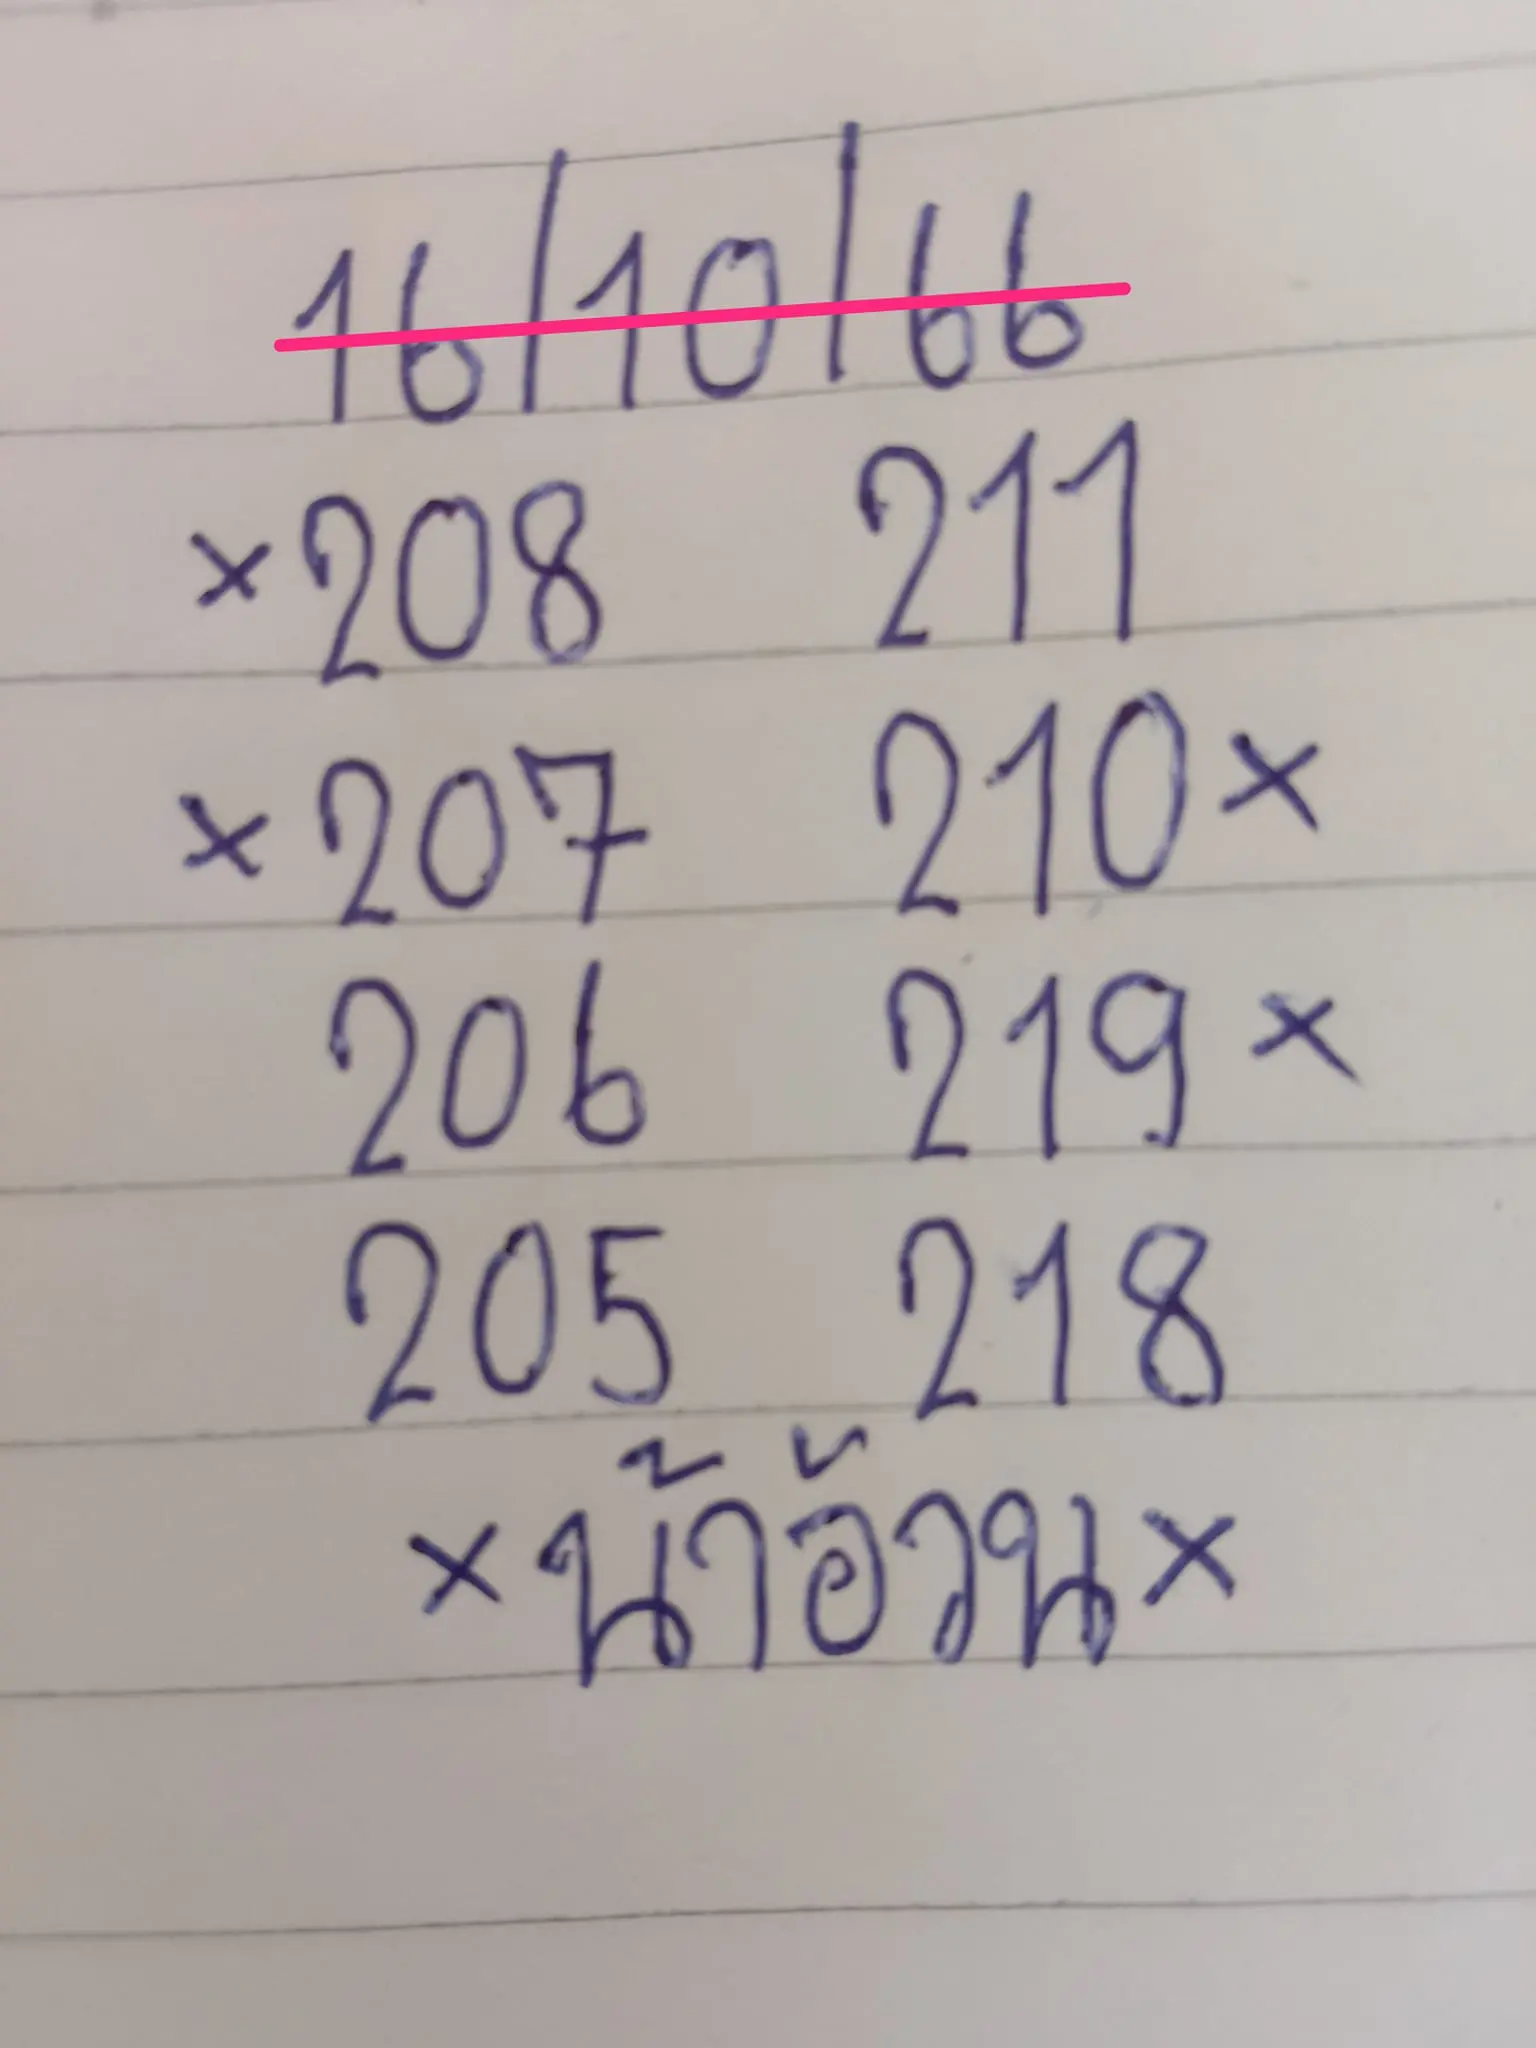 16/10/66
×208 211
×207 210×
206 219×
205 218
×น้าอ้วน×